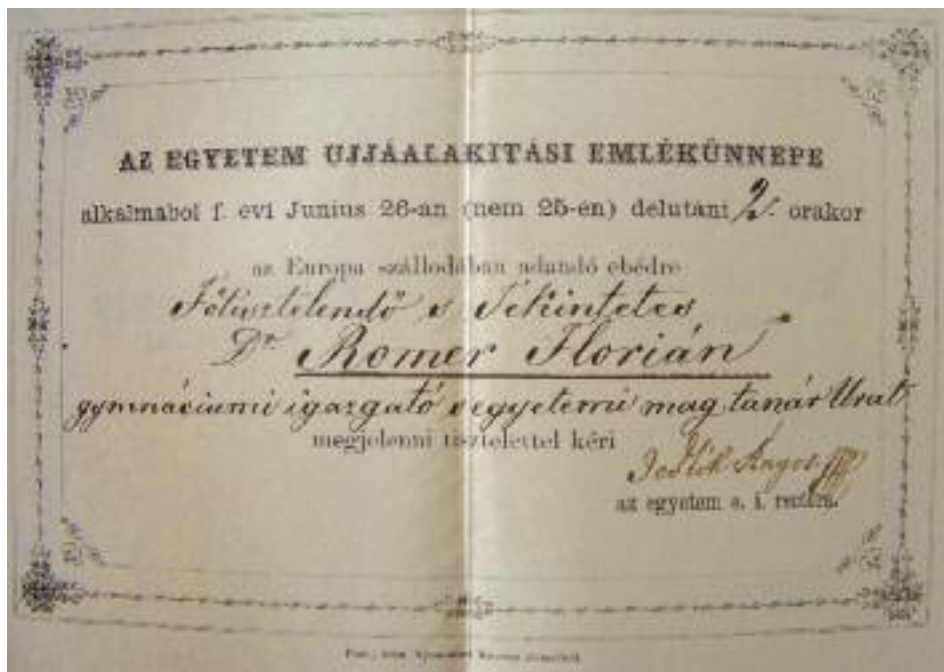 AZ EGYETEM UJJÁALAKITÁSI EMLÉKÜNNEPE
alkalmából f. évi Junius 26-án (nem 25-én) délutáni 2. órakor
az Europa szállodában adandó ebédre
Főtisztelendő s Tekintetes
Dr. Romer Flórián
gymnáciumi igazgató s egyetemi mag. tanár Urat
megjelenni tisztelettel kéri
Jedlik Ányos
az egyetem e. i. rectora.